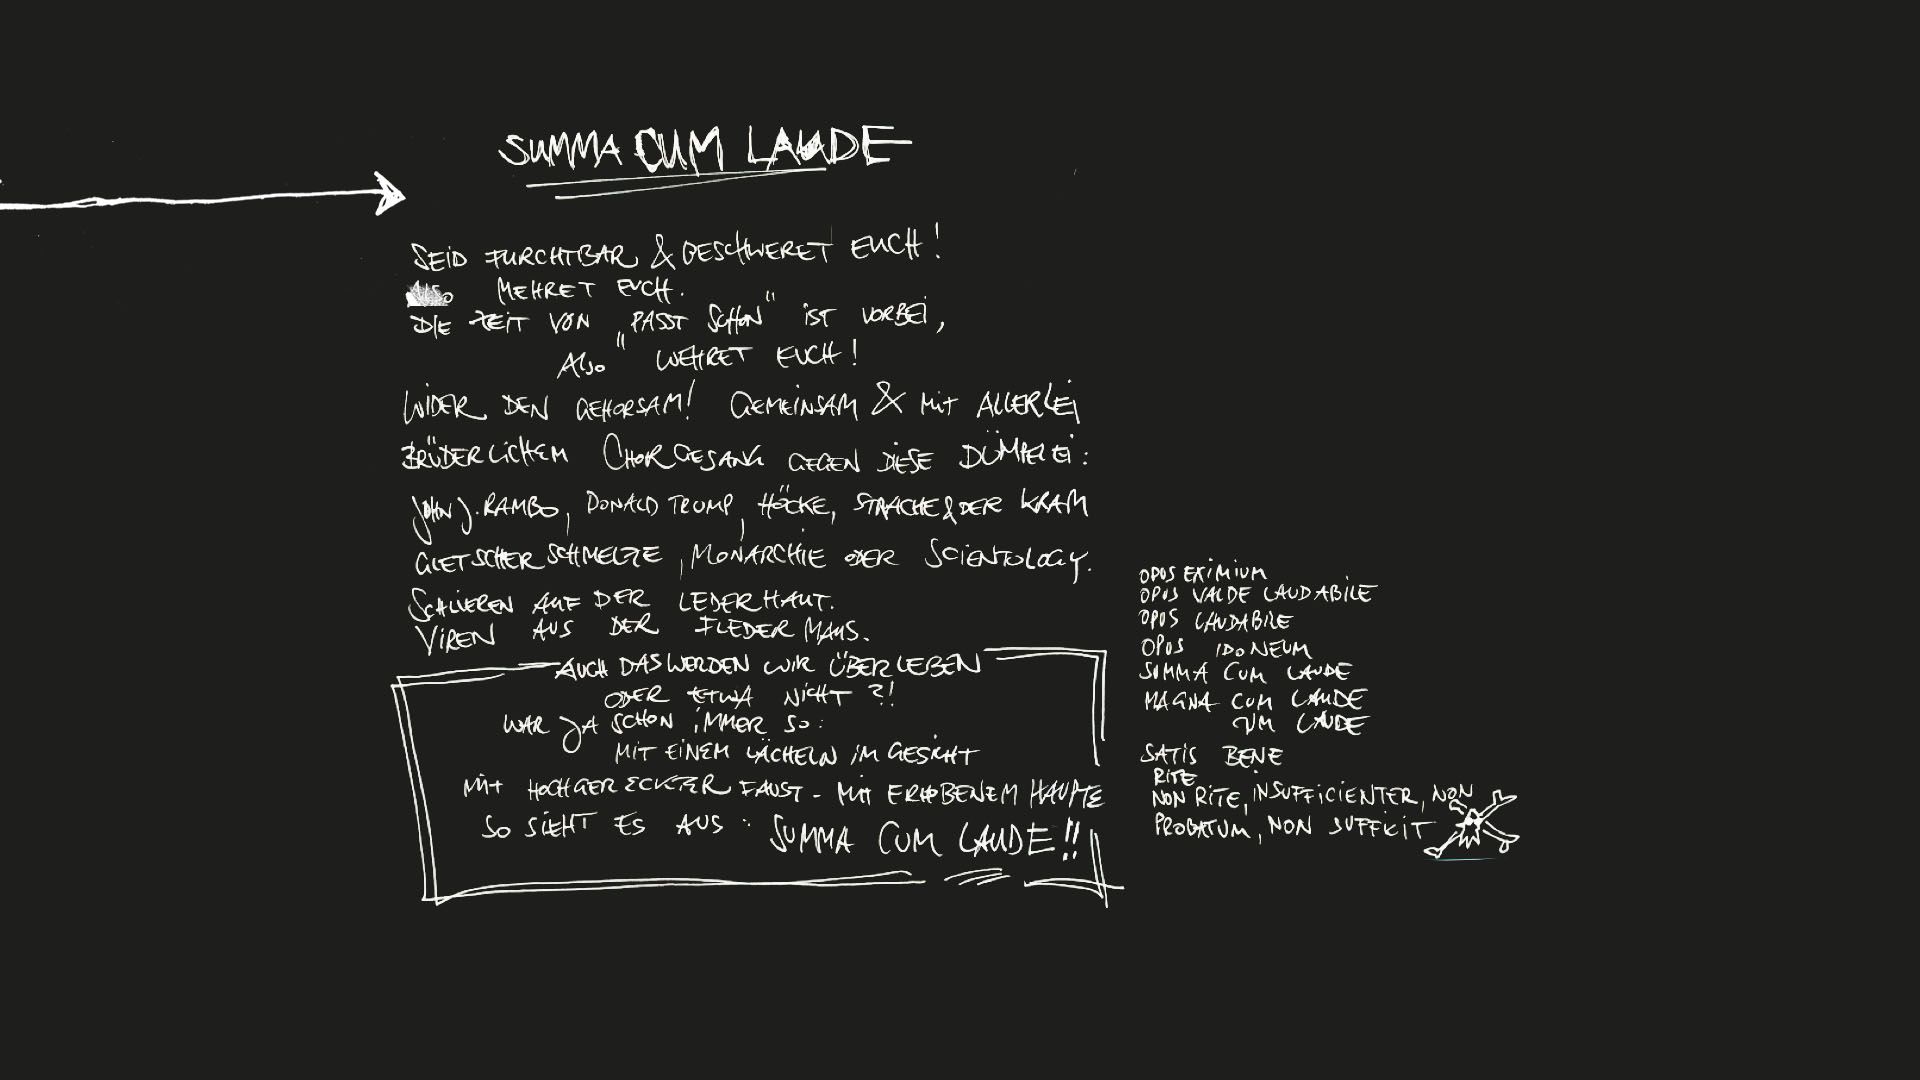 SUMMA CUM LAUDE
SEID FURCHTBAR & BESCHWERET EUCH!
ALSO MEHRET EUCH.
DIE ZEIT VON „PASST SCHON" IST VORBEI,
ALSO " WEHRET EUCH!
WIDER DEN GEHORSAM! GEMEINSAM & MIT ALLERLEI
BRÜDERLICHEM CHORGESANG GEGEN DIESE DÜMPELEI:
JOHN J. RAMBO, DONALD TRUMP, HÖCKE, STRACHE & DER KRAM
GLETSCHERSCHMELZE, MONARCHIE ODER SCIENTOLOGY.
SCHLIEREN AUF DER LEDERHAUT.
VIREN AUS DER FLEDERMAUS.
AUCH DAS WERDEN WIR ÜBERLEBEN
ODER ETWA NICHT?!
WAR JA SCHON IMMER SO:
MIT EINEM LÄCHELN IM GESICHT
MIT HOCHGERECKTER FAUST - MIT ERHOBENEM HAUPTE
SO SIEHT ES AUS: SUMMA CUM LAUDE!!
OPUS EXIMIUM
OPUS VALDE LAUDABILE
OPUS LAUDABILE
OPUS IDONEUM
SUMMA CUM LAUDE
MAGNA CUM LAUDE
CUM LAUDE
SATIS BENE
RITE
NON RITE, INSUFFICIENTER, NON
PROBATUM, NON SUFFICIT